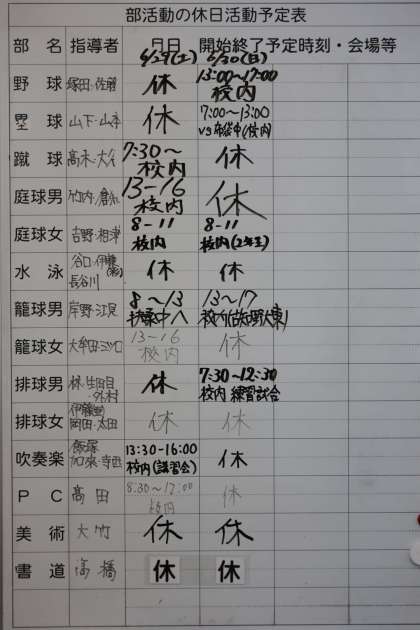 部活動の休日活動予定表
部 名 指導者 月日 開始終了予定時刻・会場等
6/29(土) 6/30(日)
野 球 塚田・佐藤 休 13:00〜17:00
校内
塁 球 山下・山本 休 7:00〜13:00
vs 布袋中(校内)
蹴 球 高木・大谷 7:30〜
校内 休
庭球男 竹内・ 13-16
校内 休
庭球女 吉野・相津 8-11
校内 8-11
校内
水 泳 谷口・伊藤
長谷川 休 休
籠球男 岸野・江見 8〜13
中へ 13〜17
校内
籠球女 大牟田・ 13-16
校内 休
排球男 林・生田目
外村 休 7:30〜12:30
校内 練習試合
排球女 伊藤
岡田・太田 休 休
吹奏楽 飯塚
加藤・寺西 13:30-16:00
校内(講習会) 休
P C 高田 8:30〜17:00
校内 休
美 術 大竹 休 休
書 道 高橋 休 休